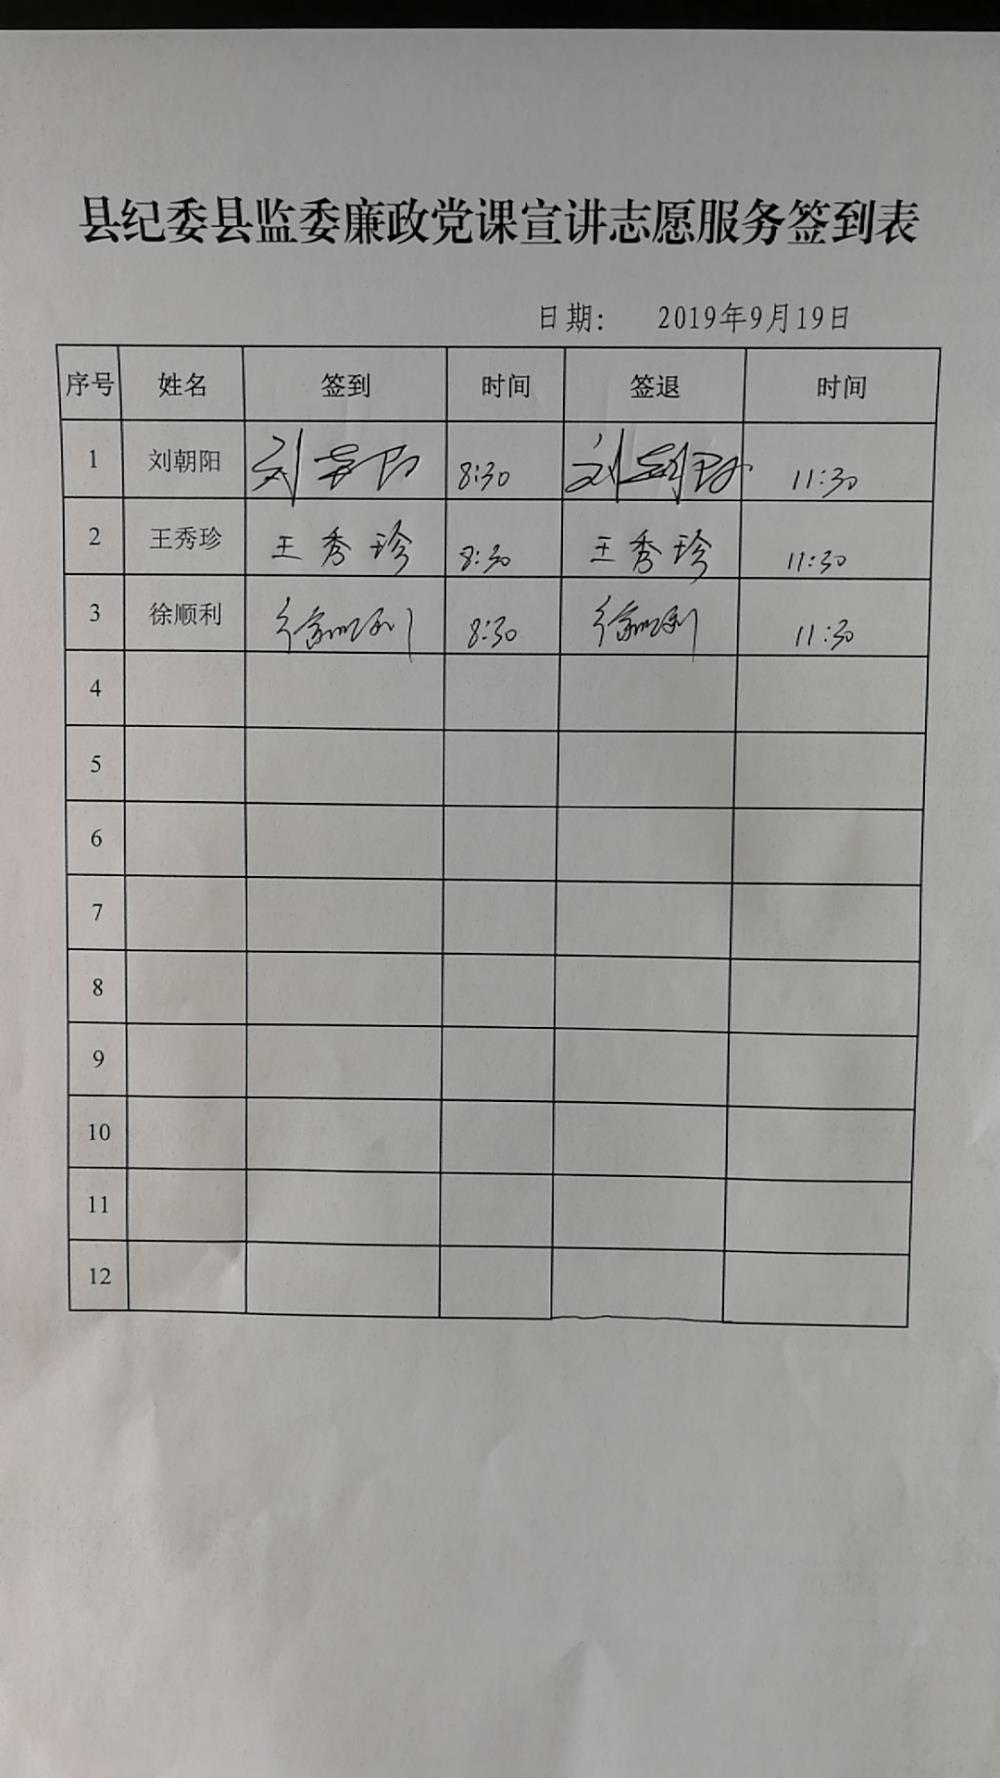 县纪委县监委廉政党课宣讲志愿服务签到表
日期： 2019年9月19日
序号 姓名 签到 时间 签退 时间
1 刘朝阳 刘朝阳 8:30 刘朝阳 11:30
2 王秀珍 王秀珍 8:30 王秀珍 11:30
3 徐顺利 徐顺利 8:30 徐顺利 11:30
4
5
6
7
8
9
10
11
12